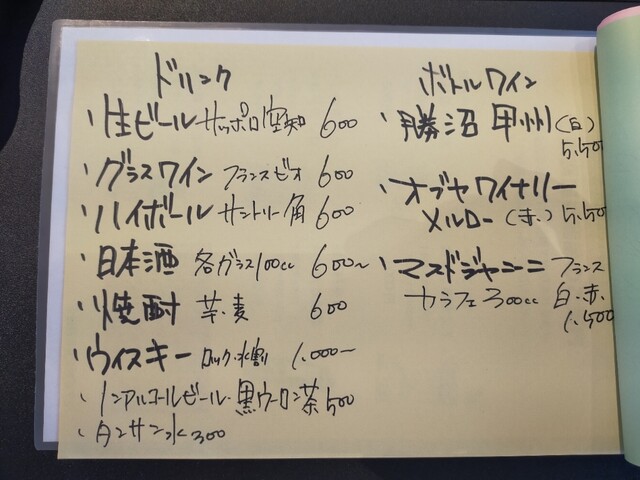 ドリンク
・生ビール サッポロ空知 600
・グラスワイン フランスビオ 600
・ハイボール サントリー角 600
・日本酒 各グラス100cc 600~
・焼酎 芋・麦 600
・ウイスキー ロック・水割 1,000~
・ノンアルコールビール・黒ウーロン茶 500
・タンサン水 300
ボトルワイン
・勝沼 甲州 (白)
5,500
・オブセワイナリー
メルロー (赤) 5,500
・マスドジャニーニ フランス
カラフェ 300cc 白・赤
1,500